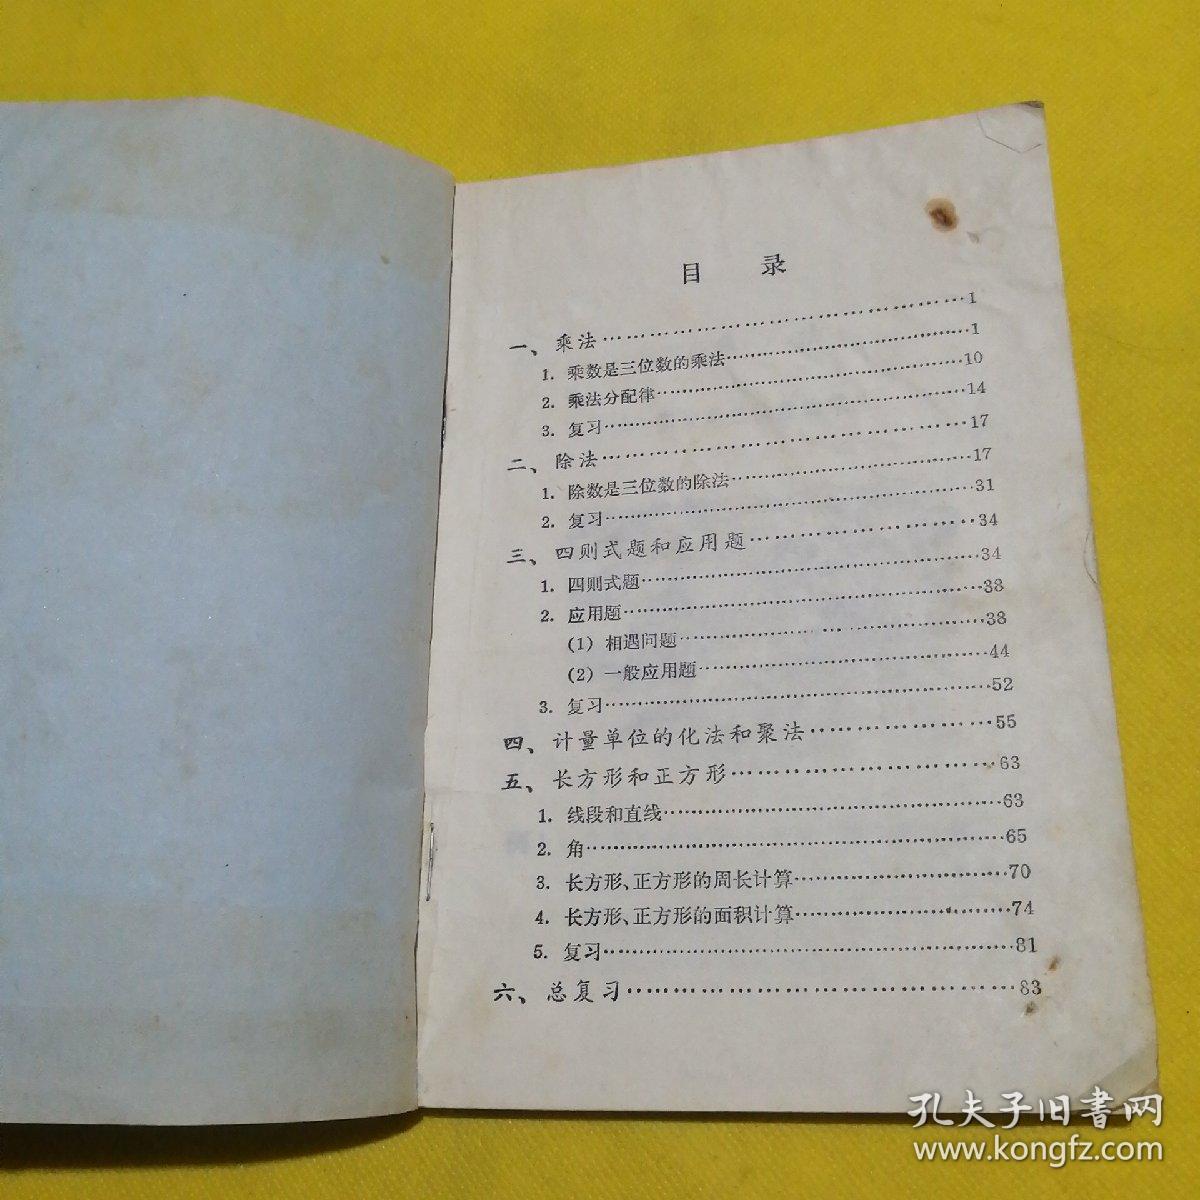 目 录
一、乘法……………………………………1
1. 乘数是三位数的乘法……………………1
2. 乘法分配律………………………………10
3. 复习………………………………………14
二、除法……………………………………17
1. 除数是三位数的除法……………………17
2. 复习………………………………………31
三、四则式题和应用题……………………34
1. 四则式题…………………………………34
2. 应用题……………………………………38
(1) 相遇问题………………………………38
(2) 一般应用题……………………………44
3. 复习………………………………………52
四、计量单位的化法和聚法………………55
五、长方形和正方形………………………63
1. 线段和直线………………………………63
2. 角…………………………………………65
3. 长方形、正方形的周长计算……………70
4. 长方形、正方形的面积计算……………74
5. 复习………………………………………81
六、总复习…………………………………83
孔夫子旧書网
www.kongfz.com